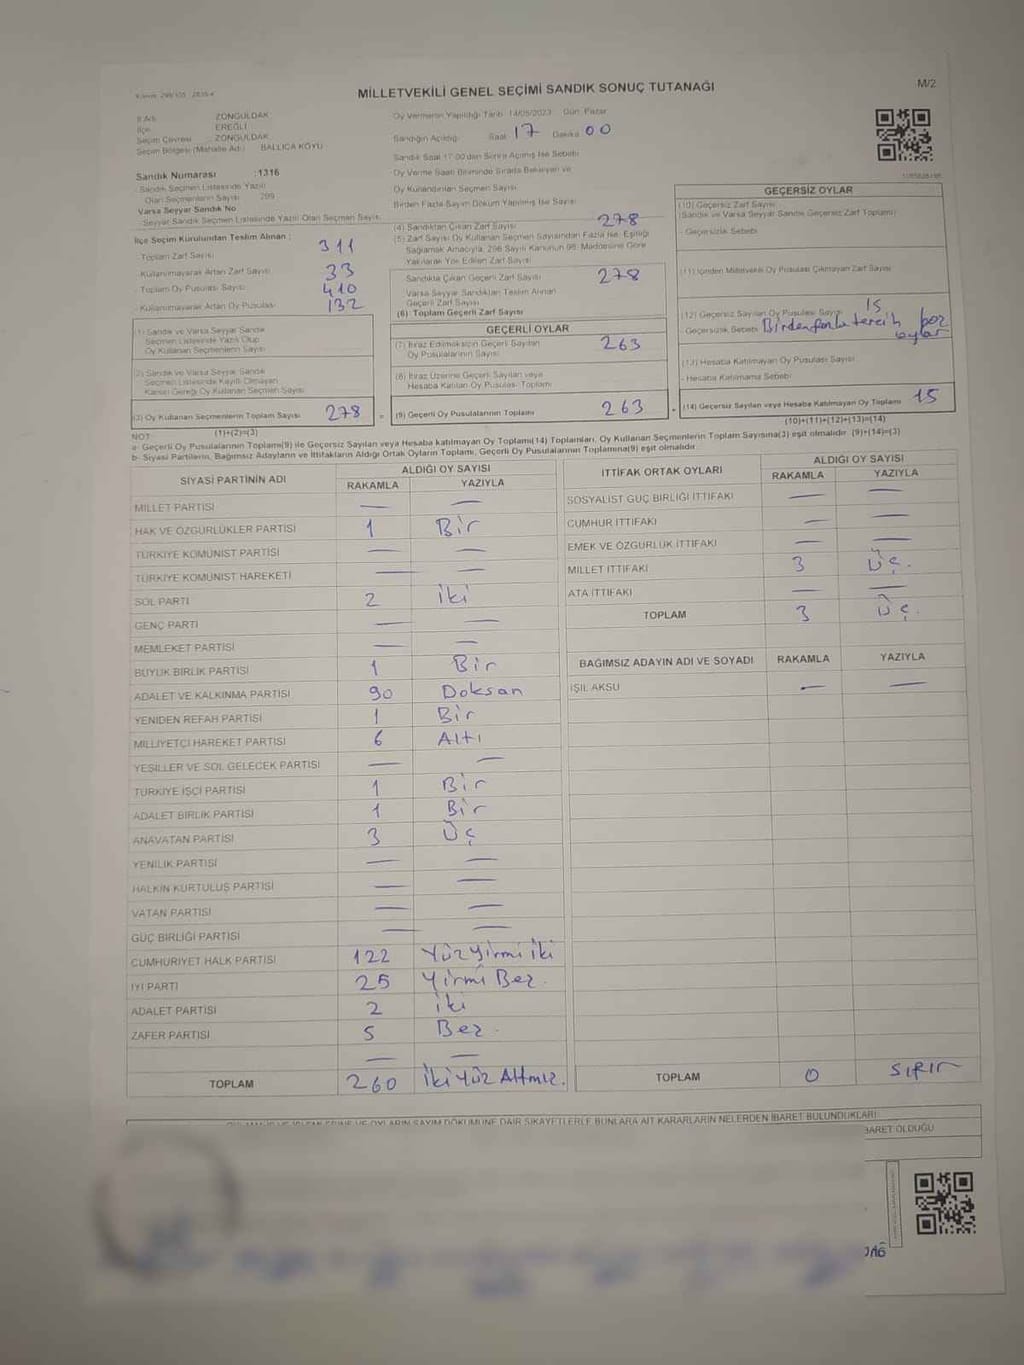 MİLLETVEKİLİ GENEL SEÇİMİ SANDIK SONUÇ TUTANAĞI
M/2
İl Adı : ZONGULDAK
İlçe : EREĞLİ
Seçim Çevresi : ZONGULDAK
Seçim Bölgesi (Mahalle Adı) : BALLICA KÖYÜ
Sandık Numarası :1316
Sandık Seçmen Listesinde Yazılı
Olan Seçmenlerin Sayısı : 299
Varsa Seyyar Sandık No
Seyyar Sandık Seçmen Listesinde Yazılı Olan Seçmen Sayısı
İlçe Seçim Kurulundan Teslim Alınan :
- Toplam Zarf Sayısı 311
- Kullanılmayarak Artan Zarf Sayısı 33
- Toplam Oy Pusulası Sayısı 410
- Kullanılmayarak Artan Oy Pusulası 132
(1) Sandık ve Varsa Seyyar Sandık
Seçmen Listesinde Yazılı Olup
Oy Kullanan Seçmenlerin Sayısı
(2) Sandık ve Varsa Seyyar Sandık
Seçmen Listesinde Kayıtlı Olmayan
Kanun Gereği Oy Kullanan Seçmen Sayısı
(3) Oy Kullanan Seçmenlerin Toplam Sayısı 278 =
(1)+(2)=(3)
Oy Vermenin Yapıldığı Tarih : 14/05/2023 Gün : Pazar
Sandığın Açıldığı Saat 17 Dakika 00
Sandık Saat 17:00'dan Sonra Açılmış İse Sebebi
Oy Verme Saati Bitiminde Sırada Bekleyen ve
Oy Kullandırılan Seçmen Sayısı
Birden Fazla Sayım Döküm Yapılmış İse Sayısı
(4) Sandıktan Çıkan Zarf Sayısı 278
(5) Zarf Sayısı Oy Kullanan Seçmen Sayısından Fazla İse, Eşitliği
Sağlamak Amacıyla, 298 Sayılı Kanunun 98. Maddesine Göre
Yakılarak Yok Edilen Zarf Sayısı
Sandıkta Çıkan Geçerli Zarf Sayısı 278
Varsa Seyyar Sandıktan Teslim Alınan
Geçerli Zarf Sayısı
(6) Toplam Geçerli Zarf Sayısı
GEÇERLİ OYLAR
(7) İtiraz Edilmeksizin Geçerli Sayılan
Oy Pusulalarının Sayısı 263
(8) İtiraz Üzerine Geçerli Sayılan veya
Hesaba Katılan Oy Pusulası Toplamı
(9) Geçerli Oy Pusulalarının Toplamı 263
GEÇERSİZ OYLAR
(10) Geçersiz Zarf Sayısı
(Sandık ve Varsa Seyyar Sandık Geçersiz Zarf Toplamı)
- Geçersizlik Sebebi
(11) İçinden Milletvekili Oy Pusulası Çıkmayan Zarf Sayısı
(12) Geçersiz Sayılan Oy Pusulası Sayısı 15
Geçersizlik Sebebi Birden fazla tercih boz oylar
(13) Hesaba Katılmayan Oy Pusulası Sayısı
- Hesaba Katılmama Sebebi
(14) Geçersiz Sayılan veya Hesaba Katılmayan Oy Toplamı 15
(10)+(11)+(12)+(13)=(14)
NOT :
a- Geçerli Oy Pusulalarının Toplamı(9) ile Geçersiz Sayılan veya Hesaba katılmayan Oy Toplamı(14) Toplamları, Oy Kullanan Seçmenlerin Toplam Sayısına(3) eşit olmalıdır. (9)+(14)=(3)
b- Siyasi Partilerin, Bağımsız Adayların ve İttifakların Aldığı Ortak Oyların Toplamı, Geçerli Oy Pusulalarının Toplamına(9) eşit olmalıdır.
SİYASİ PARTİNİN ADI ALDIĞI OY SAYISI
RAKAMLA YAZIYLA
MİLLET PARTİSİ — —
HAK VE ÖZGÜRLÜKLER PARTİSİ 1 Bir
TÜRKİYE KOMÜNİST PARTİSİ — —
TÜRKİYE KOMÜNİST HAREKETİ — —
SOL PARTİ 2 İki
GENÇ PARTİ — —
MEMLEKET PARTİSİ — —
BÜYÜK BİRLİK PARTİSİ 1 Bir
ADALET VE KALKINMA PARTİSİ 90 Doksan
YENİDEN REFAH PARTİSİ 1 Bir
MİLLİYETÇİ HAREKET PARTİSİ 6 Altı
YEŞİLLER VE SOL GELECEK PARTİSİ — —
TÜRKİYE İŞÇİ PARTİSİ 1 Bir
ADALET BİRLİK PARTİSİ 1 Bir
ANAVATAN PARTİSİ 3 Üç
YENİLİK PARTİSİ — —
HALKIN KURTULUŞ PARTİSİ — —
VATAN PARTİSİ — —
GÜÇ BİRLİĞİ PARTİSİ — —
CUMHURİYET HALK PARTİSİ 122 Yüzyirmi iki
İYİ PARTİ 25 Yirmi Beş.
ADALET PARTİSİ 2 iki
ZAFER PARTİSİ 5 Beş.
— —
TOPLAM 260 İki Yüz Altmış.
İTTİFAK ORTAK OYLARI ALDIĞI OY SAYISI
RAKAMLA YAZIYLA
SOSYALİST GÜÇ BİRLİĞİ İTTİFAKI — —
CUMHUR İTTİFAKI — —
EMEK VE ÖZGÜRLÜK İTTİFAKI — —
MİLLET İTTİFAKI 3 Üç.
ATA İTTİFAKI — —
TOPLAM 3 Üç.
BAĞIMSIZ ADAYIN ADI VE SOYADI RAKAMLA YAZIYLA
IŞIL AKSU — —
TOPLAM 0 Sıfır
OYLARIN SAYIM DÖKÜMÜNE DAİR ŞİKAYETLERLE BUNLARA AİT KARARLARIN NELERDEN İBARET BULUNDUKLARI
BARET OLDUĞU